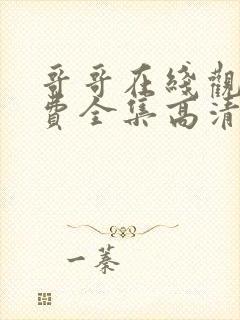 哥哥在綫觀
費全集高清
一蓁